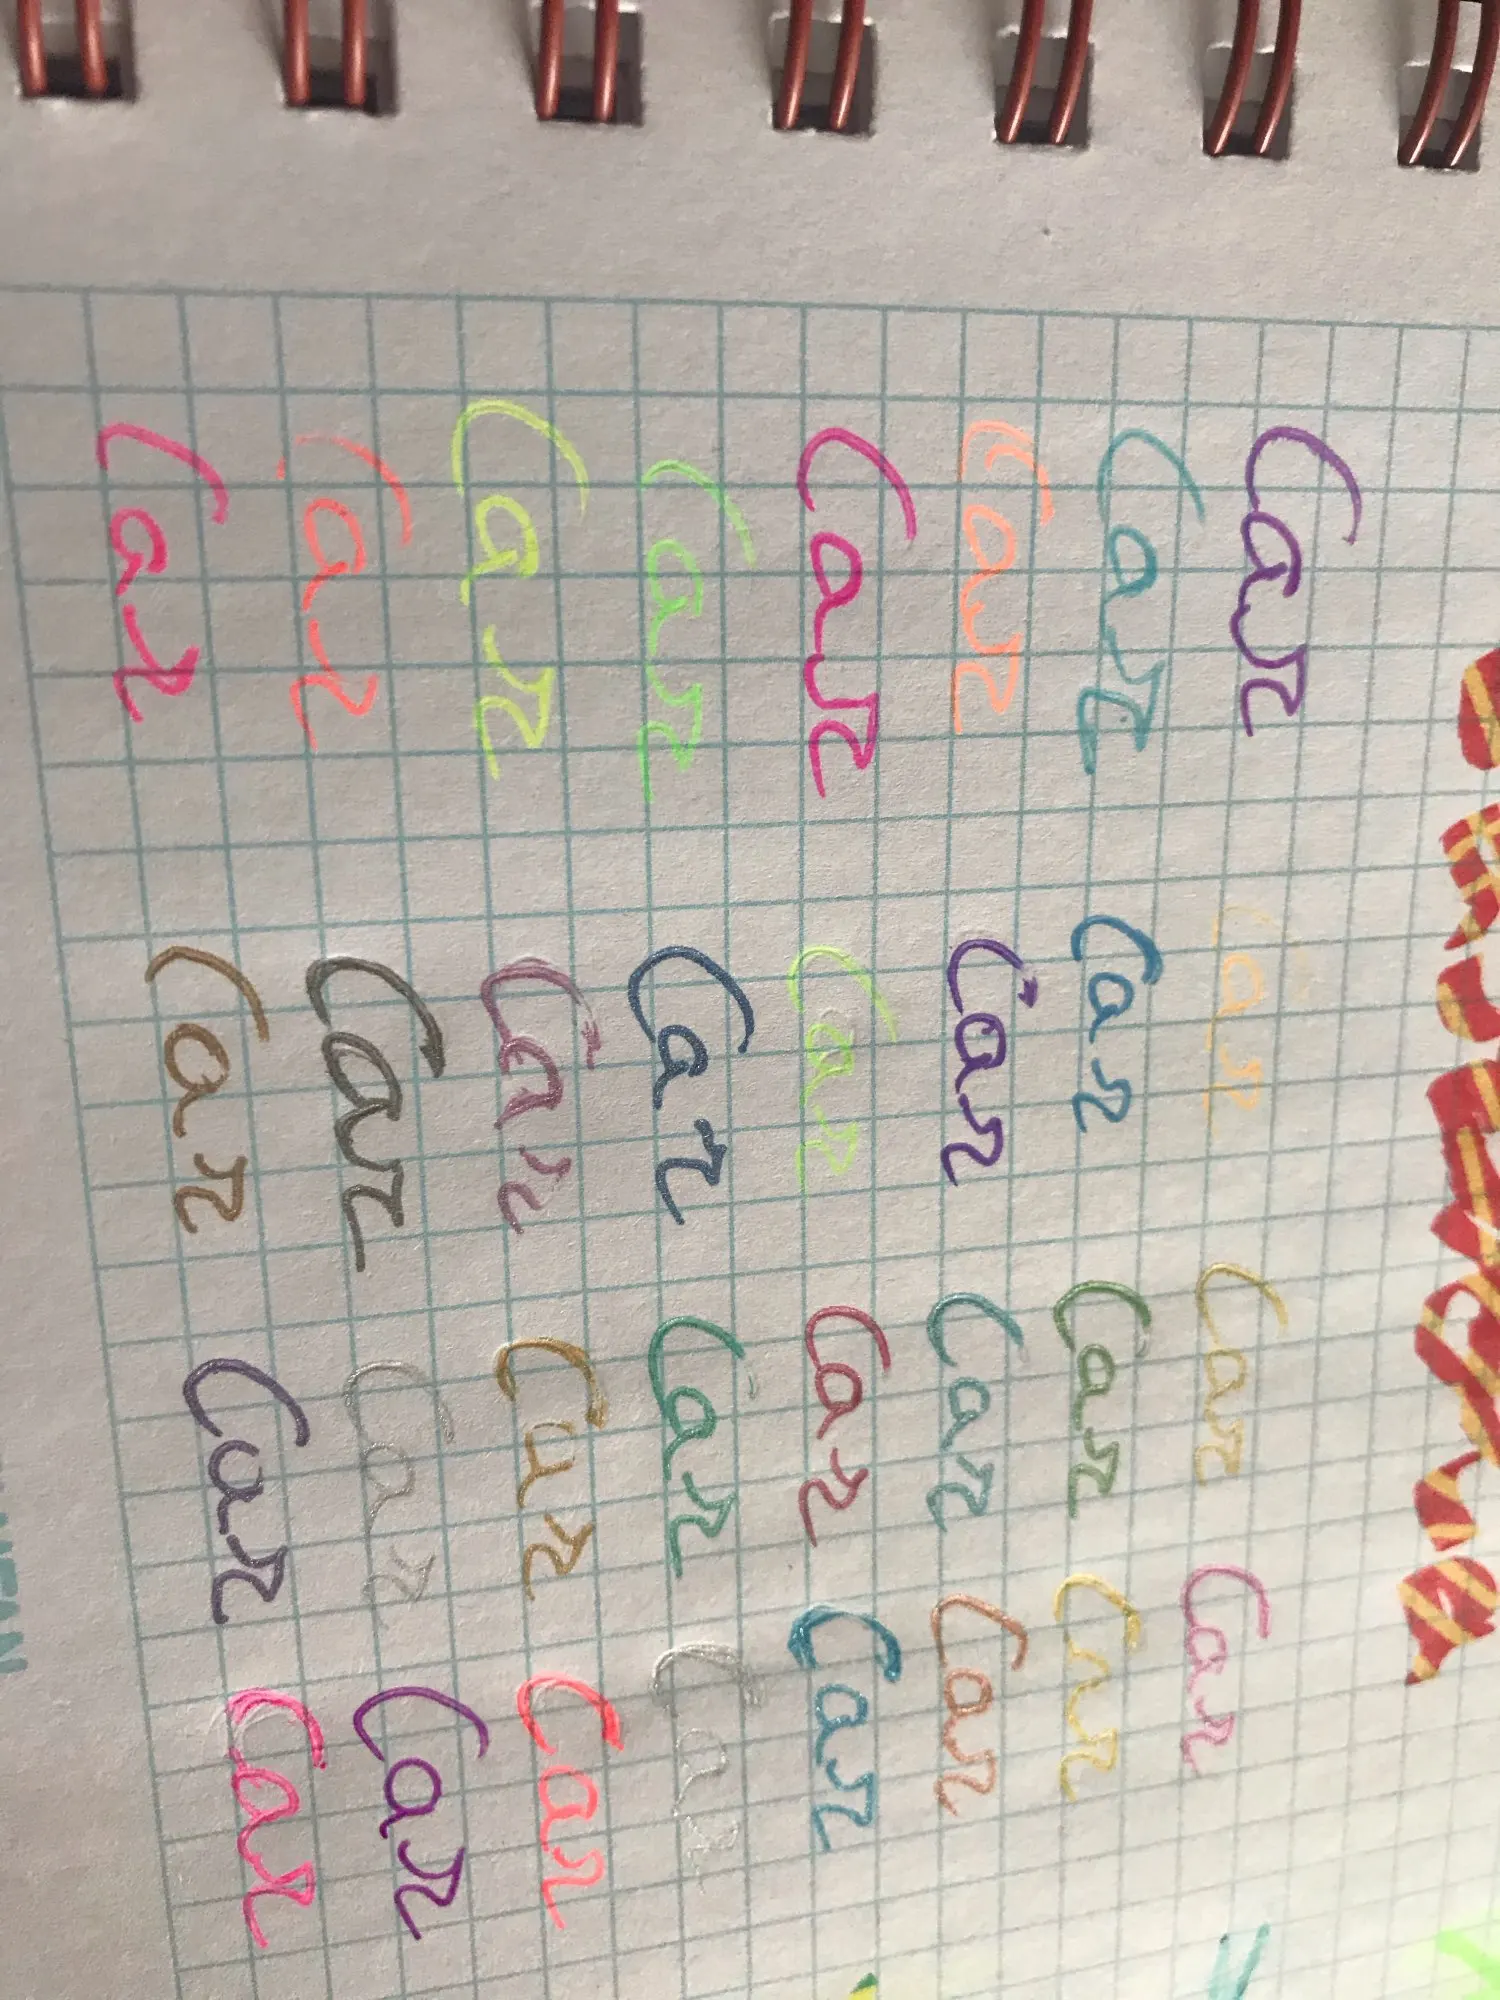 Car Car Car Car
Car Car Car Car
Car Car Car Car
Car Car Car Car
Car Car Car Car
Car Car Car Car
Car Car Car Car
Car Car Car Car